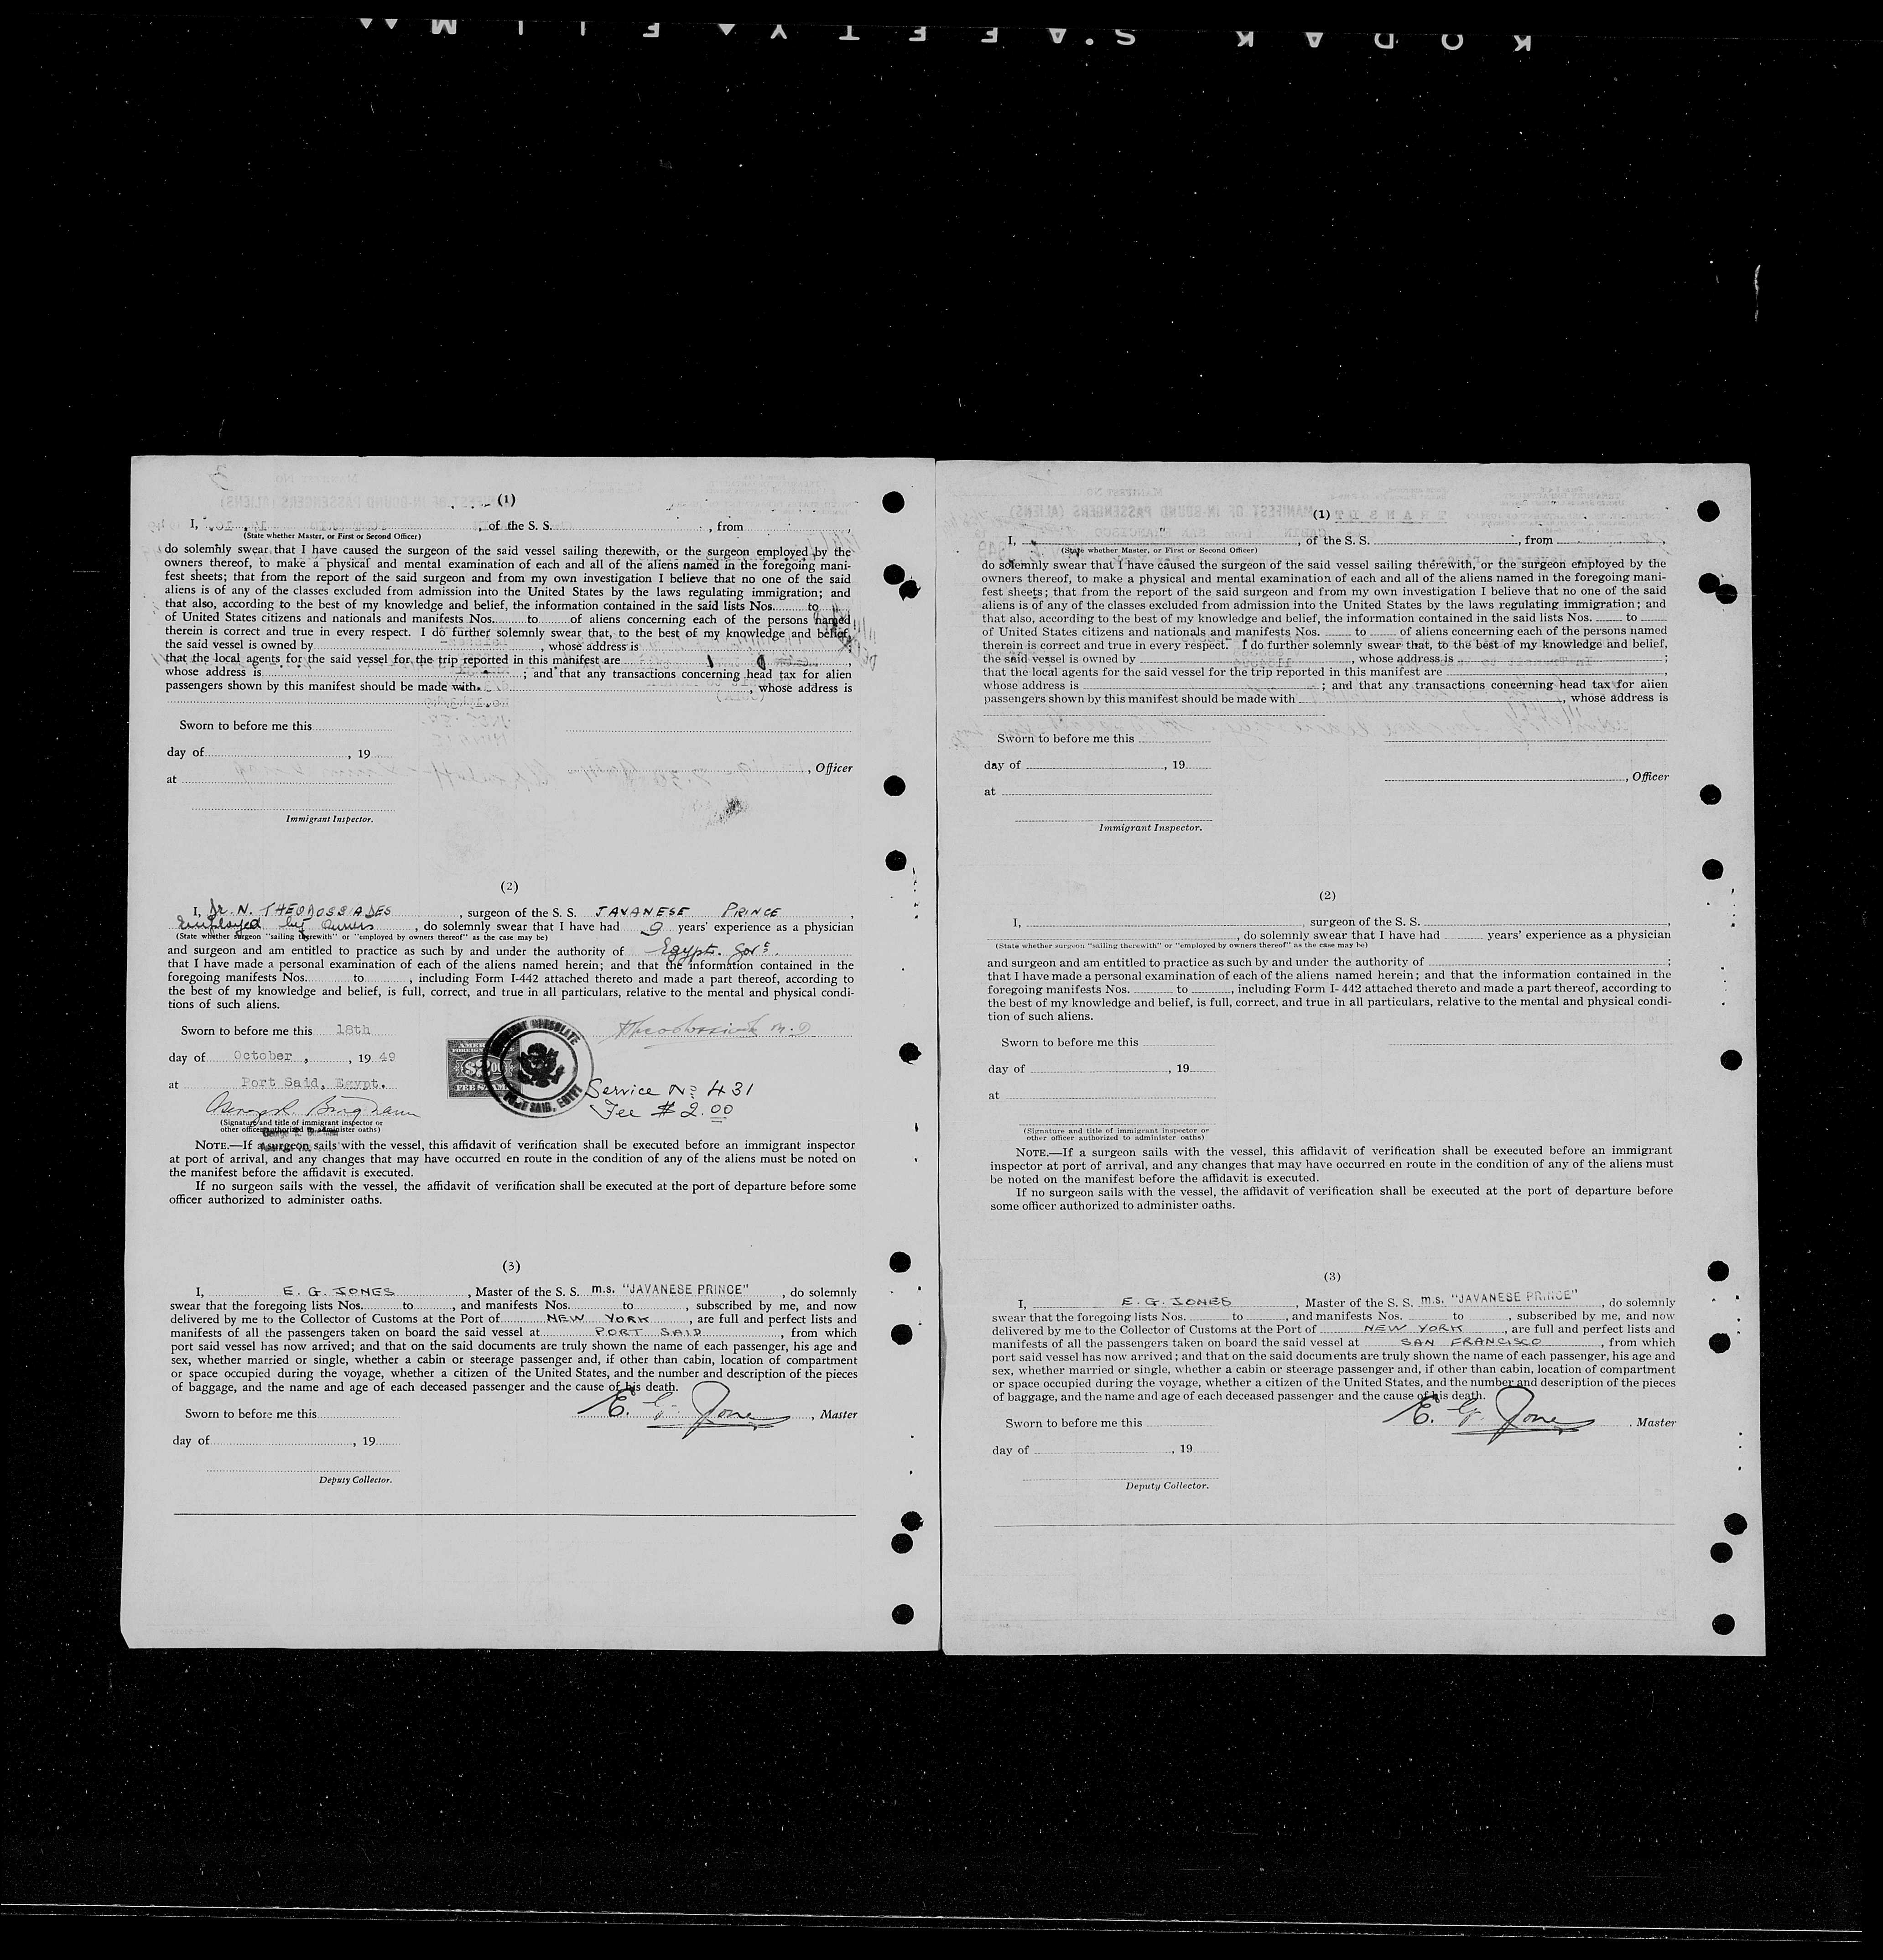 KODAK S.AFETY FILM
(1)
I, , of the S. S. , from ,
(State whether Master, or First or Second Officer)
do solemnly swear that I have caused the surgeon of the said vessel sailing therewith, or the surgeon employed by the
owners thereof, to make a physical and mental examination of each and all of the aliens named in the foregoing mani-
fest sheets; that from the report of the said surgeon and from my own investigation I believe that no one of the said
aliens is of any of the classes excluded from admission into the United States by the laws regulating immigration; and
that also, according to the best of my knowledge and belief, the information contained in the said lists Nos. to
of United States citizens and nationals and manifests Nos. to of aliens concerning each of the persons named
therein is correct and true in every respect. I do further solemnly swear that, to the best of my knowledge and belief,
the said vessel is owned by , whose address is
that the local agents for the said vessel for the trip reported in this manifest are ,
whose address is ; and that any transactions concerning head tax for alien
passengers shown by this manifest should be made with , whose address is
Sworn to before me this
day of , 19
, Officer
at
Immigrant Inspector.
(2)
I, Dr. N. THEODOSSIADES , surgeon of the S. S. JAVANESE PRINCE ,
Employed by Owners , do solemnly swear that I have had 9 years' experience as a physician
(State whether surgeon "sailing therewith" or "employed by owners thereof" as the case may be)
and surgeon and am entitled to practice as such by and under the authority of Egypt. Govt.
that I have made a personal examination of each of the aliens named herein; and that the information contained in the
foregoing manifests Nos. to , including Form I-442 attached thereto and made a part thereof, according to
the best of my knowledge and belief, is full, correct, and true in all particulars, relative to the mental and physical condi-
tions of such aliens.
Sworn to before me this 18th
M.D
day of October , , 19 49
at Port Said, Egypt.
$2.00
FEE STAMP
PORT SAID, EGYPT
Service No 431
Fee $ 2.00
(Signature and title of immigrant inspector or
other officer authorized to administer oaths)
NOTE.—If a surgeon sails with the vessel, this affidavit of verification shall be executed before an immigrant inspector
at port of arrival, and any changes that may have occurred en route in the condition of any of the aliens must be noted on
the manifest before the affidavit is executed.
If no surgeon sails with the vessel, the affidavit of verification shall be executed at the port of departure before some
officer authorized to administer oaths.
(3)
I, E. G. JONES , Master of the S. S. m.s. "JAVANESE PRINCE" , do solemnly
swear that the foregoing lists Nos. to , and manifests Nos. to , subscribed by me, and now
delivered by me to the Collector of Customs at the Port of NEW YORK , are full and perfect lists and
manifests of all the passengers taken on board the said vessel at PORT SAID , from which
port said vessel has now arrived; and that on the said documents are truly shown the name of each passenger, his age and
sex, whether married or single, whether a cabin or steerage passenger and, if other than cabin, location of compartment
or space occupied during the voyage, whether a citizen of the United States, and the number and description of the pieces
of baggage, and the name and age of each deceased passenger and the cause of his death.
Sworn to before me this E. G. Jones , Master
day of , 19
Deputy Collector.
(1)
I, , of the S. S. , from ,
(State whether Master, or First or Second Officer)
do solemnly swear that I have caused the surgeon of the said vessel sailing therewith, or the surgeon employed by the
owners thereof, to make a physical and mental examination of each and all of the aliens named in the foregoing mani-
fest sheets; that from the report of the said surgeon and from my own investigation I believe that no one of the said
aliens is of any of the classes excluded from admission into the United States by the laws regulating immigration; and
that also, according to the best of my knowledge and belief, the information contained in the said lists Nos. to
of United States citizens and nationals and manifests Nos. to of aliens concerning each of the persons named
therein is correct and true in every respect. I do further solemnly swear that, to the best of my knowledge and belief,
the said vessel is owned by , whose address is ;
that the local agents for the said vessel for the trip reported in this manifest are ,
whose address is ; and that any transactions concerning head tax for alien
passengers shown by this manifest should be made with , whose address is
Sworn to before me this
day of , 19
, Officer
at
Immigrant Inspector.
(2)
I, , surgeon of the S. S. ,
, do solemnly swear that I have had years' experience as a physician
(State whether surgeon "sailing therewith" or "employed by owners thereof" as the case may be)
and surgeon and am entitled to practice as such by and under the authority of ;
that I have made a personal examination of each of the aliens named herein; and that the information contained in the
foregoing manifests Nos. to , including Form I-442 attached thereto and made a part thereof, according to
the best of my knowledge and belief, is full, correct, and true in all particulars, relative to the mental and physical condi-
tion of such aliens.
Sworn to before me this
day of , 19
at
(Signature and title of immigrant inspector or
other officer authorized to administer oaths)
NOTE.—If a surgeon sails with the vessel, this affidavit of verification shall be executed before an immigrant
inspector at port of arrival, and any changes that may have occurred en route in the condition of any of the aliens must
be noted on the manifest before the affidavit is executed.
If no surgeon sails with the vessel, the affidavit of verification shall be executed at the port of departure before
some officer authorized to administer oaths.
(3)
I, E. G. JONES , Master of the S. S. m.s. "JAVANESE PRINCE" , do solemnly
swear that the foregoing lists Nos. to , and manifests Nos. to , subscribed by me, and now
delivered by me to the Collector of Customs at the Port of NEW YORK , are full and perfect lists and
manifests of all the passengers taken on board the said vessel at SAN FRANCISCO , from which
port said vessel has now arrived; and that on the said documents are truly shown the name of each passenger, his age and
sex, whether married or single, whether a cabin or steerage passenger and, if other than cabin, location of compartment
or space occupied during the voyage, whether a citizen of the United States, and the number and description of the pieces
of baggage, and the name and age of each deceased passenger and the cause of his death.
Sworn to before me this E. G. Jones , Master
day of , 19
Deputy Collector.